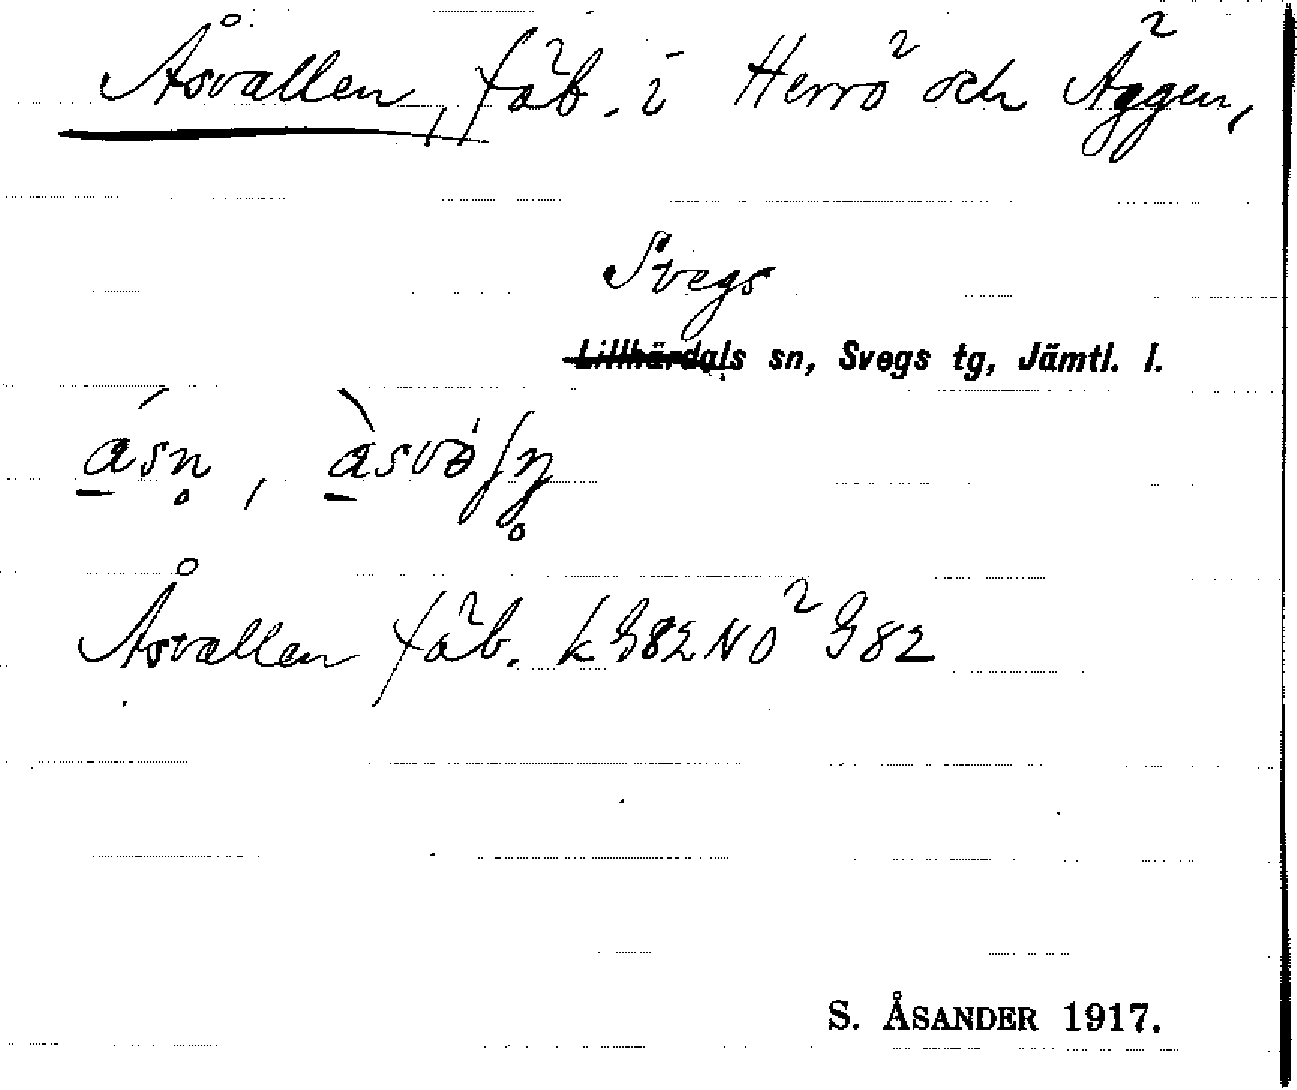 Åsvallen, fäb. i Herrö och Äggen,
Svegs
Lillhärdals sn, Svegs tg, Jämtl. l.
Åsvallen fäb. k G82 NÖ G82
S. ÅSANDER 1917.